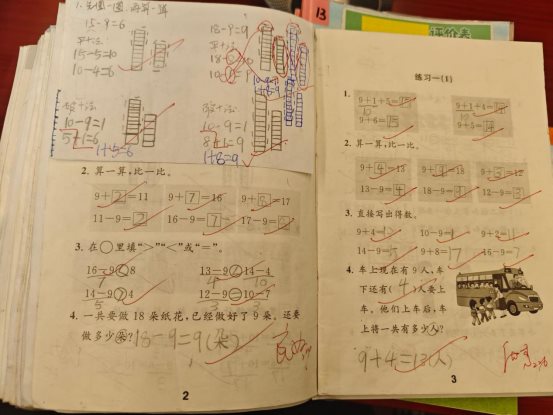 1. 先圈一圈,再算一算
15-9=6
平十法
15-5=10
10-4=6
破十法
10-9=1
5+1=6
1+5=6
18-9=9
平十法
18-8=10
10-1=9
破十法
10-9=1
8+1=9
1+8=9
2. 算一算,比一比。
9+2=11 9+7=16 9+8=17
11-9=2 16-9=7 17-9=8
3. 在○里填“>”“<”或“=”。
16-9<8 13-9<14-4
7 4 10
14-9>4 12-9=10-7
5 3 3
4. 一共要做 18 朵纸花,已经做好了 9 朵。还要
做多少朵? 18-9=9(朵)
2
B
评价表
练习一(1)
1.
9+1+5=15 9+1+4=14
10 10
9+6=15 9+5=14
2. 算一算,比一比。
9+4=13 9+9=18 9+3=12
13-9=4 18-9=9 12-9=3
3. 直接写出得数。
9+4=13 10-9=1 9+2=11
14-9=5 9+8=17 16-9=7
4. 车上现在有 9 人,车
下还有(4)人要上
车。他们上车后,车
上将一共有多少人?
9+4=13(人)
3